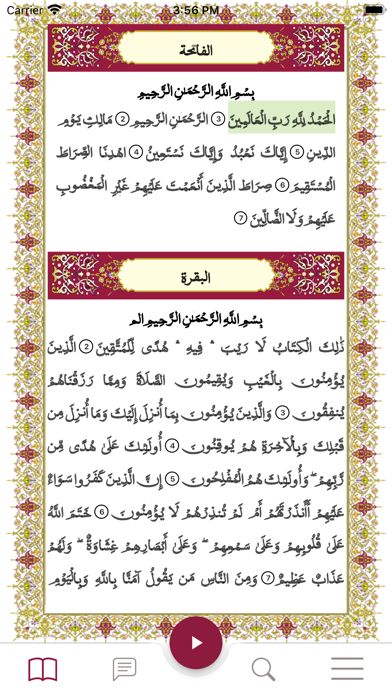 Carrier 3:56 PM
الفاتحة
بِسْمِ اللَّهِ الرَّحْمَٰنِ الرَّحِيمِ
الْحَمْدُ لِلَّهِ رَبِّ الْعَالَمِينَ ③ الرَّحْمَٰنِ الرَّحِيمِ ② مَالِكِ يَوْمِ
الدِّينِ ⑤ إِيَّاكَ نَعْبُدُ وَإِيَّاكَ نَسْتَعِينُ ④ اهْدِنَا الصِّرَاطَ
الْمُسْتَقِيمَ ⑥ صِرَاطَ الَّذِينَ أَنْعَمْتَ عَلَيْهِمْ غَيْرِ الْمَغْضُوبِ
عَلَيْهِمْ وَلَا الضَّالِّينَ ⑦
البقرة
بِسْمِ اللَّهِ الرَّحْمَٰنِ الرَّحِيمِ الم
ذَٰلِكَ الْكِتَابُ لَا رَيْبَ ۛ فِيهِ ۛ هُدًى لِّلْمُتَّقِينَ ② الَّذِينَ
يُؤْمِنُونَ بِالْغَيْبِ وَيُقِيمُونَ الصَّلَاةَ وَمِمَّا رَزَقْنَاهُمْ
يُنفِقُونَ ③ وَالَّذِينَ يُؤْمِنُونَ بِمَا أُنزِلَ إِلَيْكَ وَمَا أُنزِلَ مِن
قَبْلِكَ وَبِالْآخِرَةِ هُمْ يُوقِنُونَ ④ أُولَٰئِكَ عَلَىٰ هُدًى مِّن
رَّبِّهِمْ ۖ وَأُولَٰئِكَ هُمُ الْمُفْلِحُونَ ⑤ إِنَّ الَّذِينَ كَفَرُوا سَوَاءٌ
عَلَيْهِمْ أَأَنذَرْتَهُمْ أَمْ لَمْ تُنذِرْهُمْ لَا يُؤْمِنُونَ ⑥ خَتَمَ اللَّهُ
عَلَىٰ قُلُوبِهِمْ وَعَلَىٰ سَمْعِهِمْ ۖ وَعَلَىٰ أَبْصَارِهِمْ غِشَاوَةٌ ۖ وَلَهُمْ
عَذَابٌ عَظِيمٌ ⑦ وَمِنَ النَّاسِ مَن يَقُولُ آمَنَّا بِاللَّهِ وَبِالْيَوْمِ